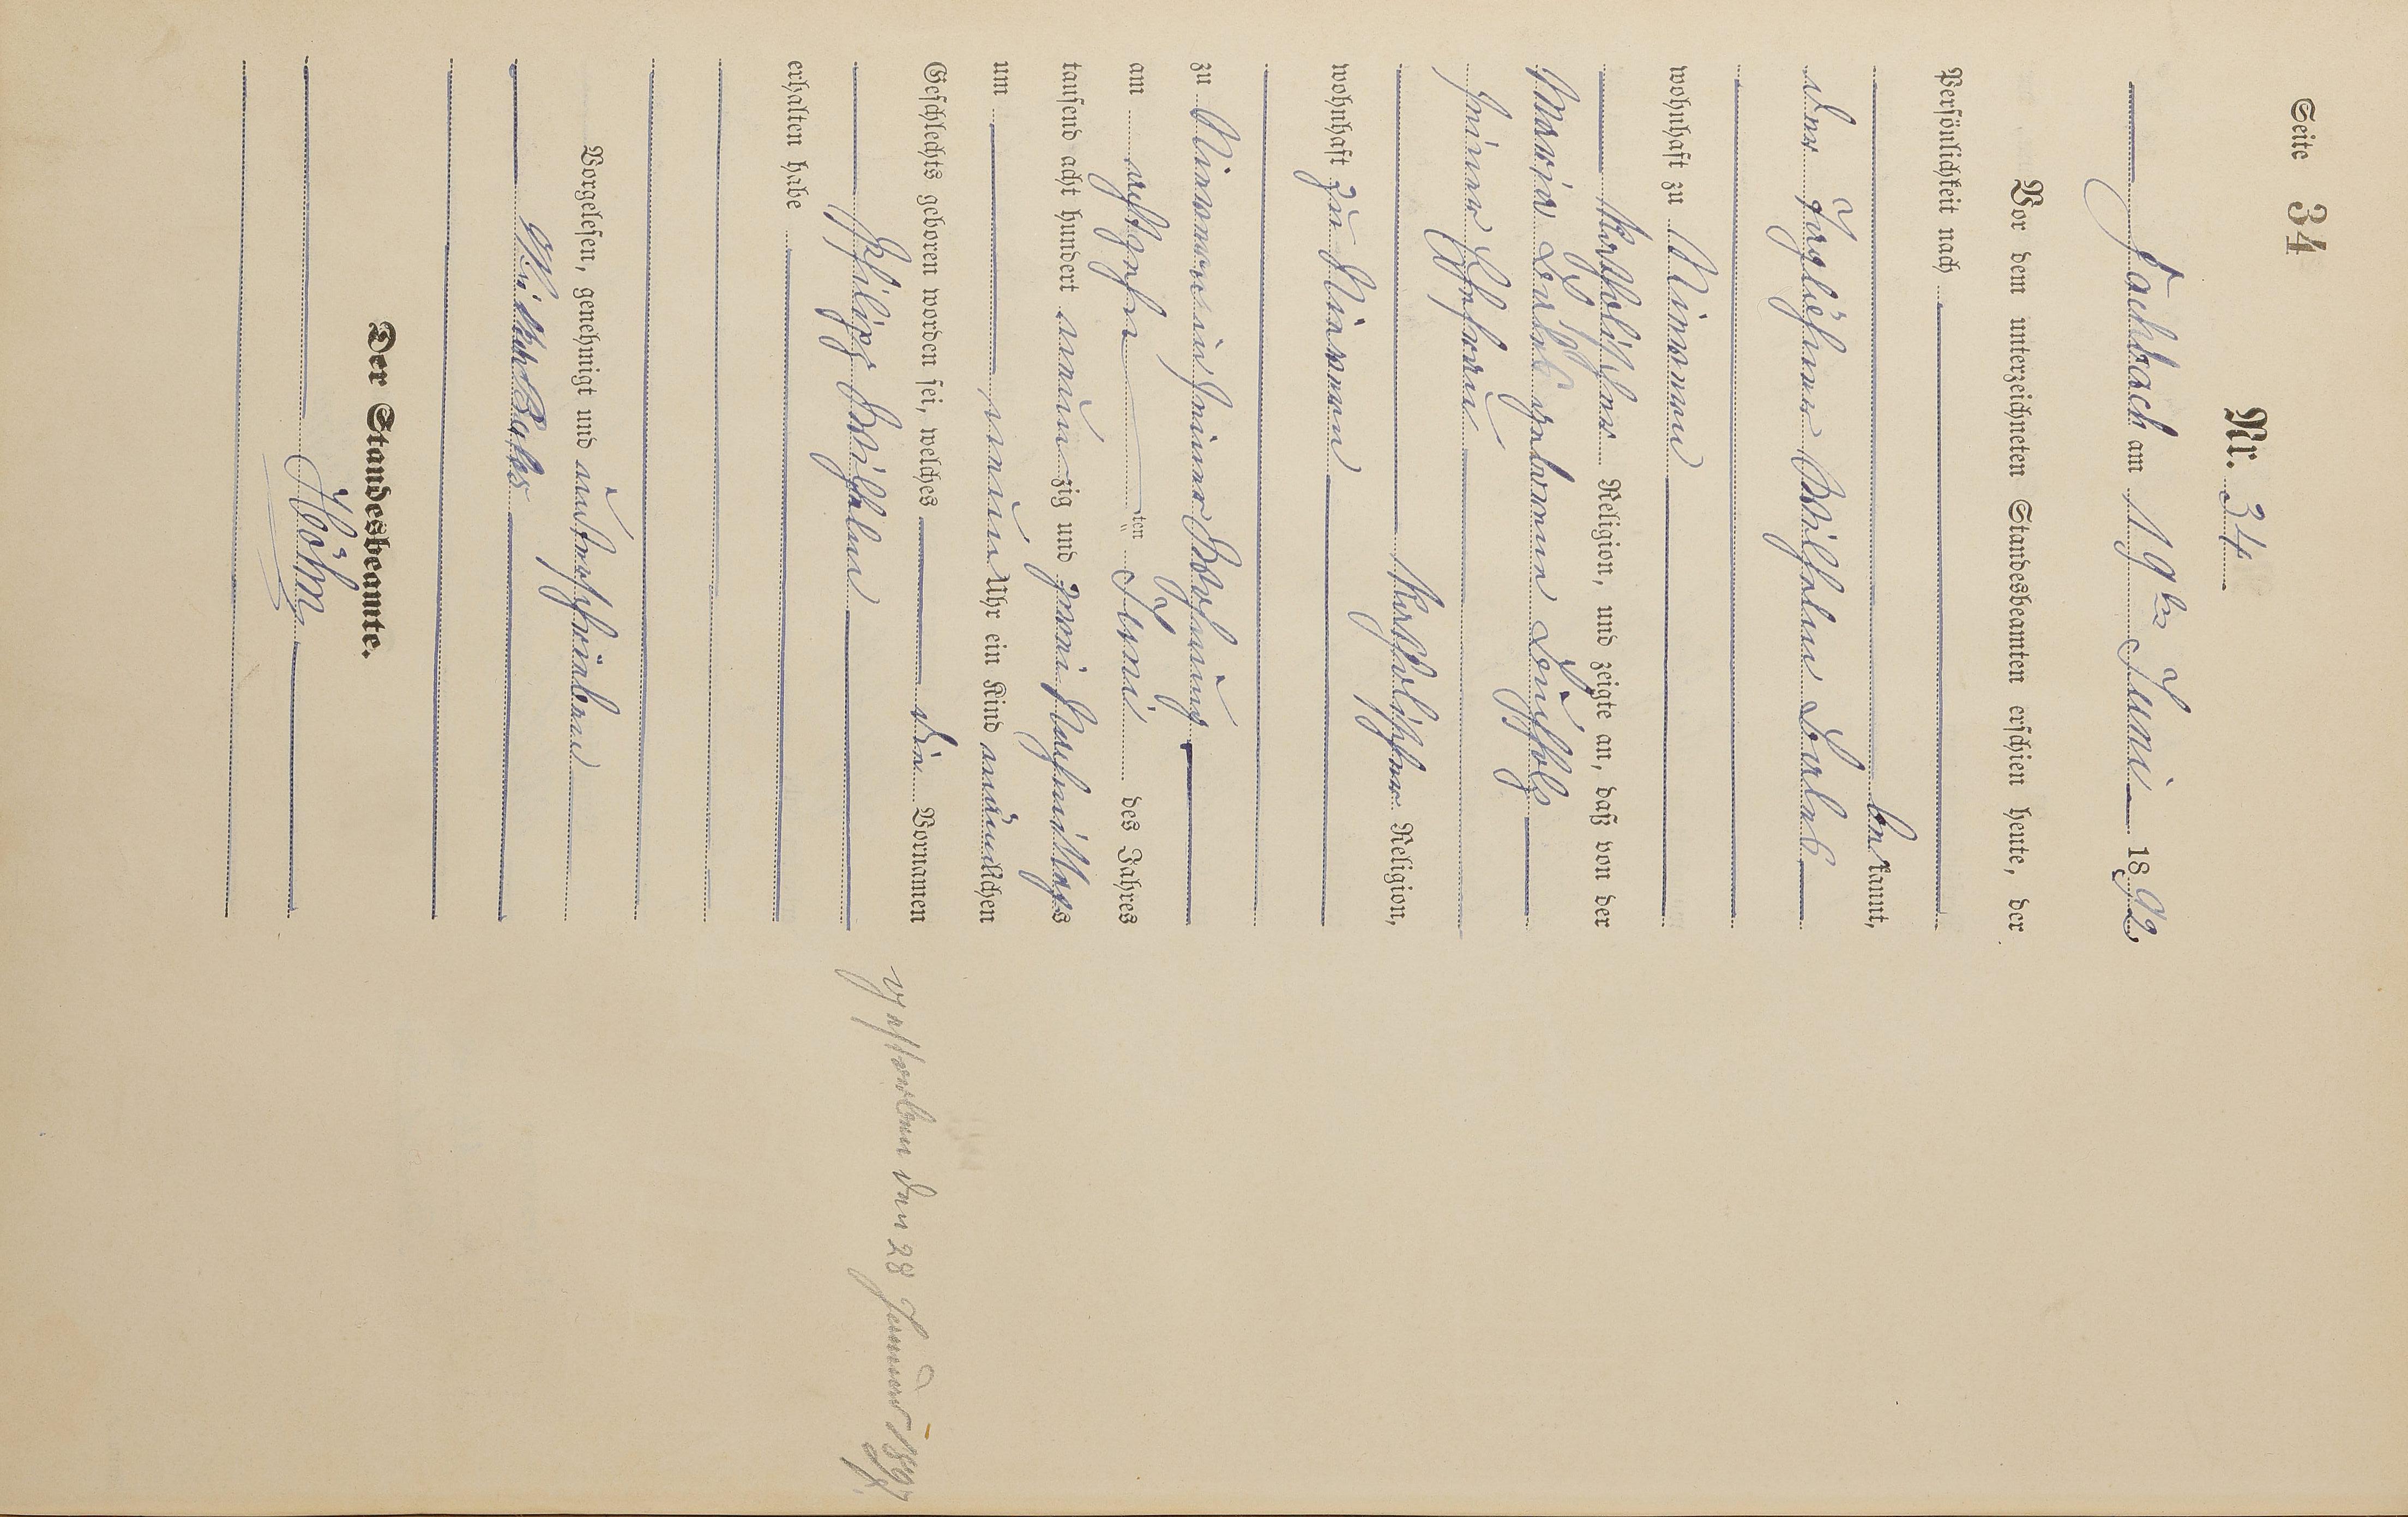 Seite 34
Nr. 34
Fachbach am 19ten Juni 1892
Vor dem unterzeichneten Standesbeamten erschien heute, der
Persönlichkeit nach
bekannt,
der Taglöhner Wilhelm
wohnhaft zu Nievern
katholischer Religion, und zeigte an, daß von der
Maria geborene
seiner Ehefrau
katholischer Religion,
wohnhaft zu Nievern
zu Nievern in seiner Wohnung
am achtzehnten Juni des Jahres
tausend acht hundert neunzig und zwei Nachmittags
um neun Uhr ein Kind männlichen
Geschlechts geboren worden sei, welches den Vornamen
Philipp Wilhelm
erhalten habe
Vorgelesen, genehmigt und unterschrieben
Der Standesbeamte.
Höhn
gestorben den 28 Januar